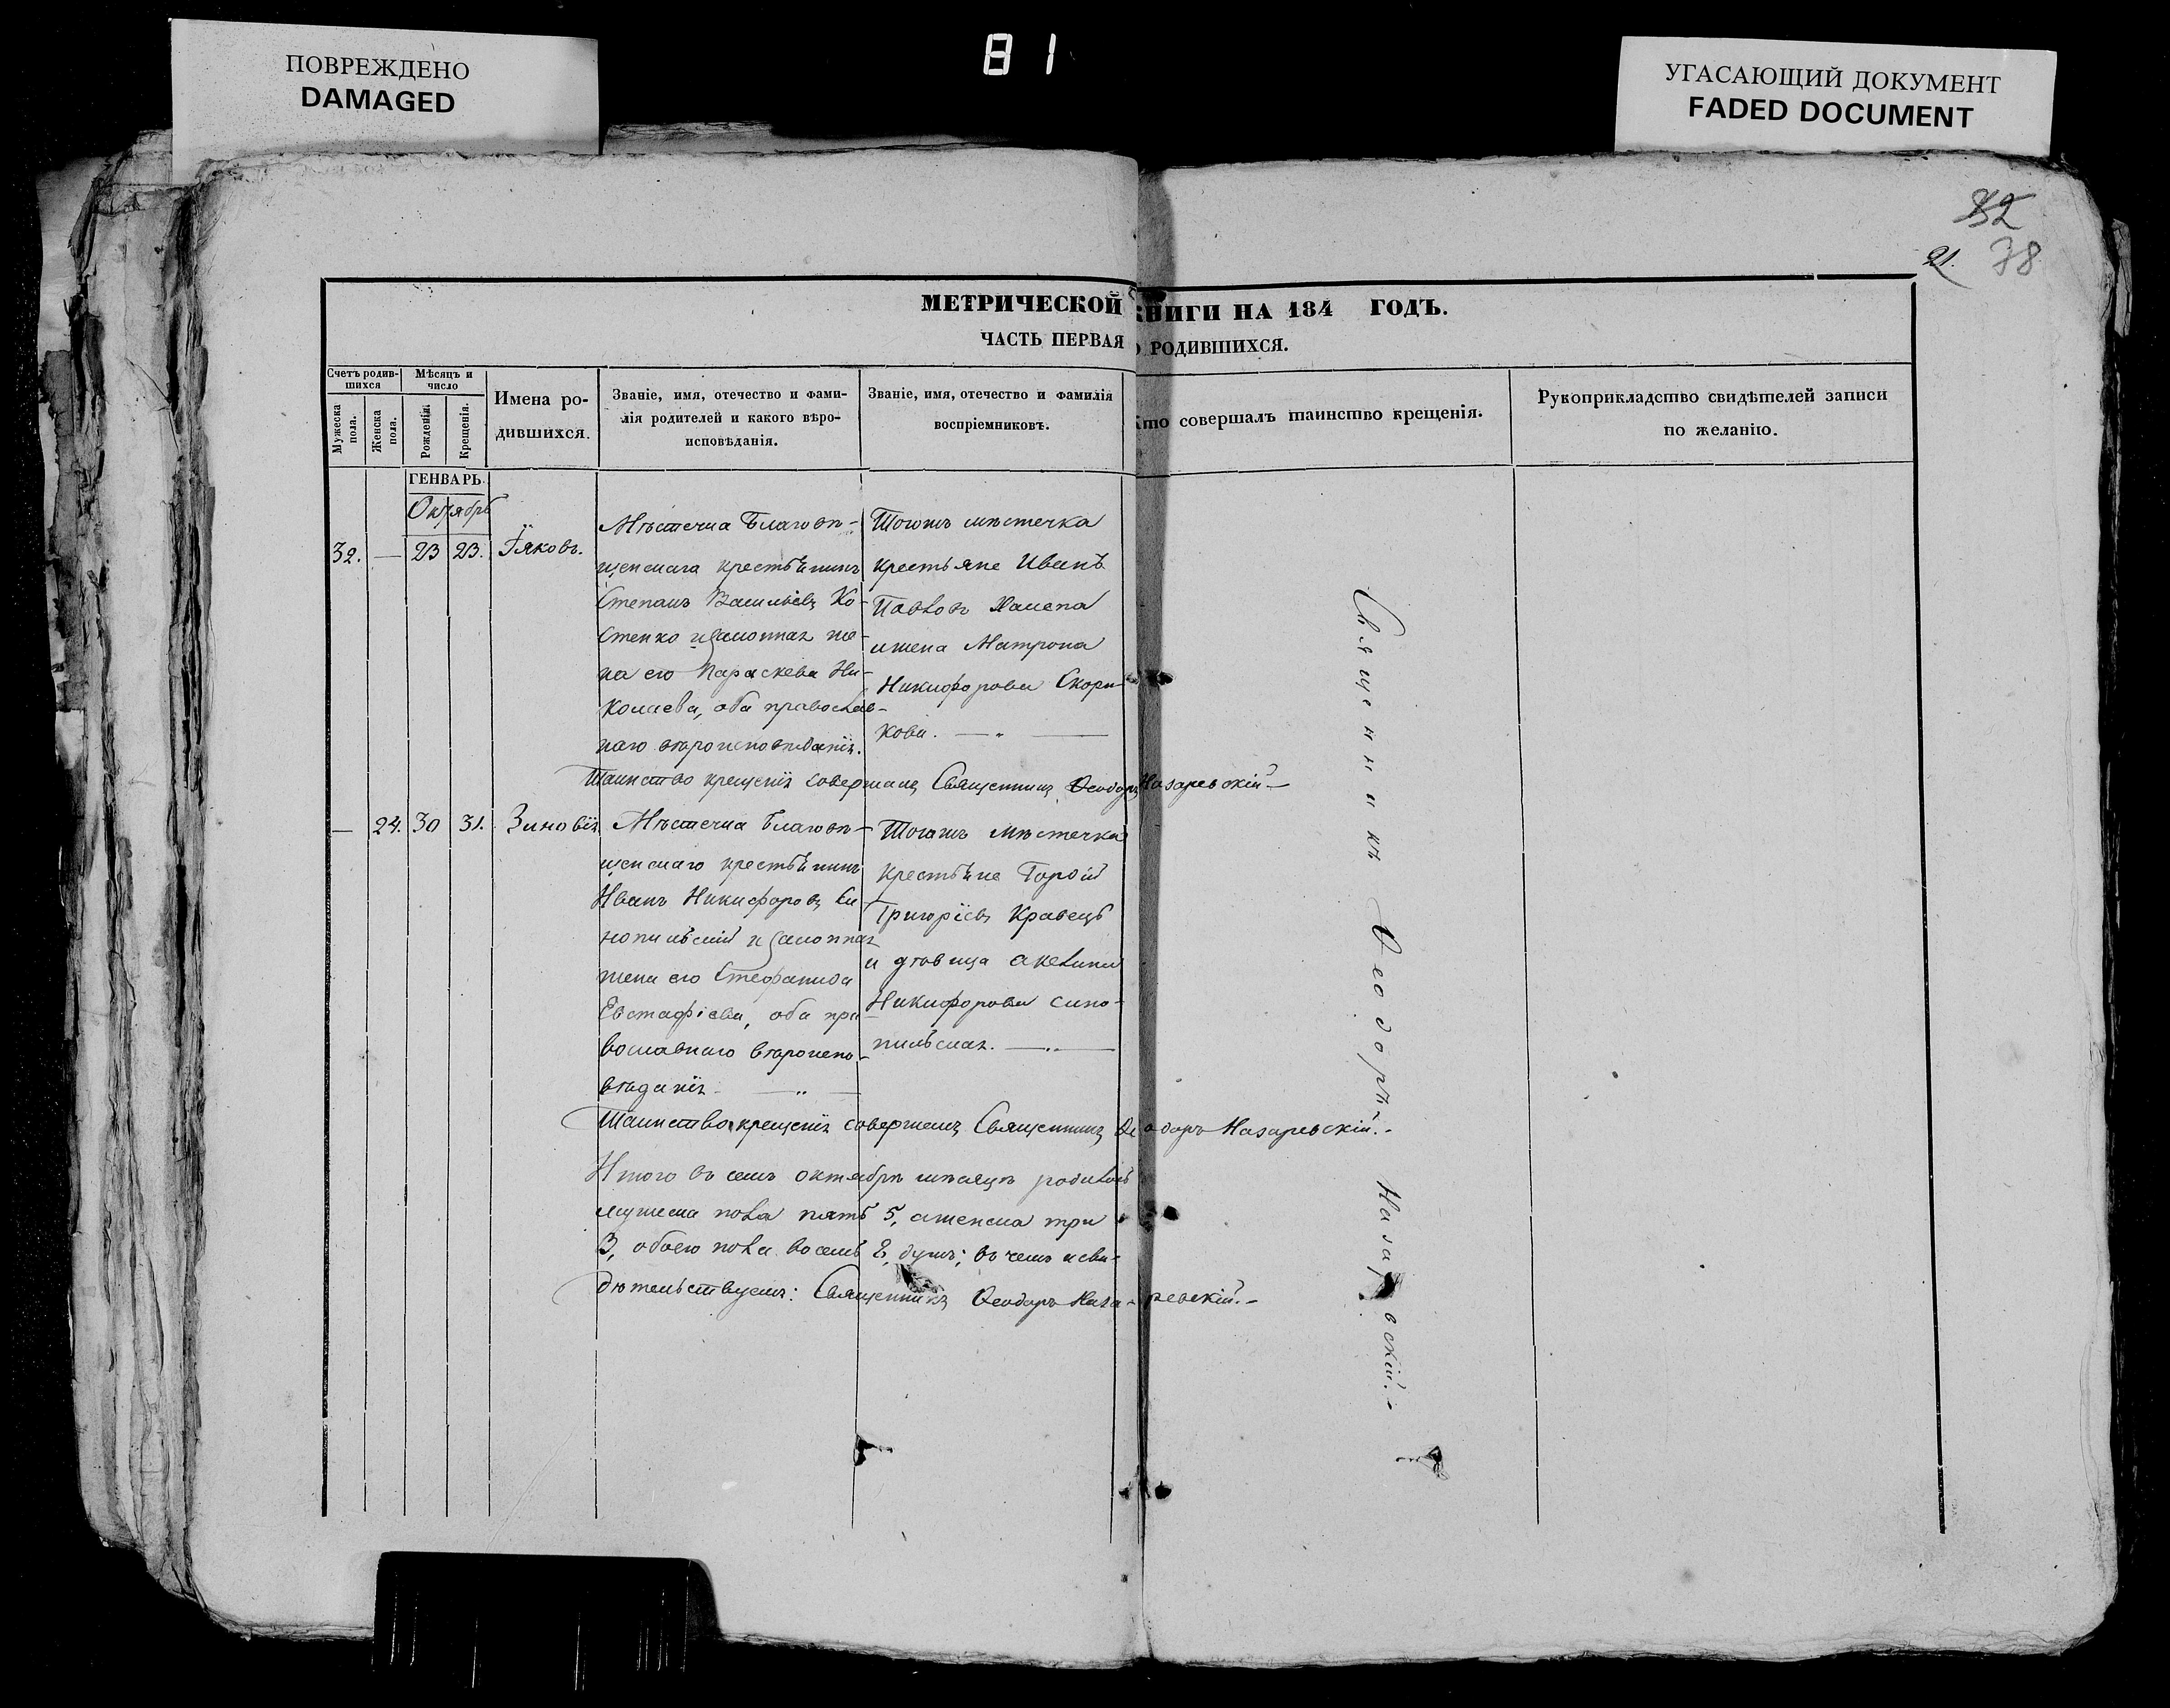 ПОВРЕЖДЕНО
DAMAGED
81
УГАСАЮЩИЙ ДОКУМЕНТ
FADED DOCUMENT
82
21. 78
МЕТРИЧЕСКОЙ КНИГИ НА 184 ГОДЪ.
ЧАСТЬ ПЕРВАЯ О РОДИВШИХСЯ.
Счетъ родив-
шихся
Мужеска пола.
Женска пола.
Мѣсяцъ и
число
Рожденія.
Крещенія.
Имена ро-
дившихся.
Званіе, имя, отечество и фами-
лія родителей и какого вѣро-
исповѣданія.
Званіе, имя, отечество и фамилія
воспріемниковъ.
Кто совершалъ таинство крещенія.
Рукоприкладство свидѣтелей записи
по желанію.
ГЕНВАРЬ.
Октябрь
32. — 23 23. Іяковъ.
Мѣстечка Благовѣ-
щенскаго крестьянинъ
Степанъ Васильевъ Ко-
стенко и законная же-
на его Параскева Ни-
колаева, оба православ-
наго вѣроисповѣданія.
Тогожъ мѣстечка
крестьяне Иванъ
Павловъ
и жена Матрона
Никифорова Скори-
кова. — „ —
Таинство крещенія совершалъ Священникъ Ѳеодоръ Назаревскій —
— 24. 30 31. Зиновія
Мѣстечка Благовѣ-
щенскаго крестьянинъ
Иванъ Никифоровъ Си-
нопильскій и законная
жена его Стефанида
Евстафіева, оба пра-
вославнаго вѣроиспо-
вѣданія — „ —
Тогожъ мѣстечка
крестьяне
Григоріевъ Кравецъ
и вдовица
Никифорова Сино-
пильская. — „ —
Таинство крещенія совершалъ Священникъ Ѳеодоръ Назаревскій. -
Итого въ семъ октябрѣ мѣсяцѣ родилось
мужеска пола пять 5, а женска три
3, обоего пола восемь 8, душъ; въ чемъ и сви-
дѣтельствуемъ: Священникъ Ѳеодоръ Назаревскій. -
Священникъ Ѳеодоръ Назаревскій. -